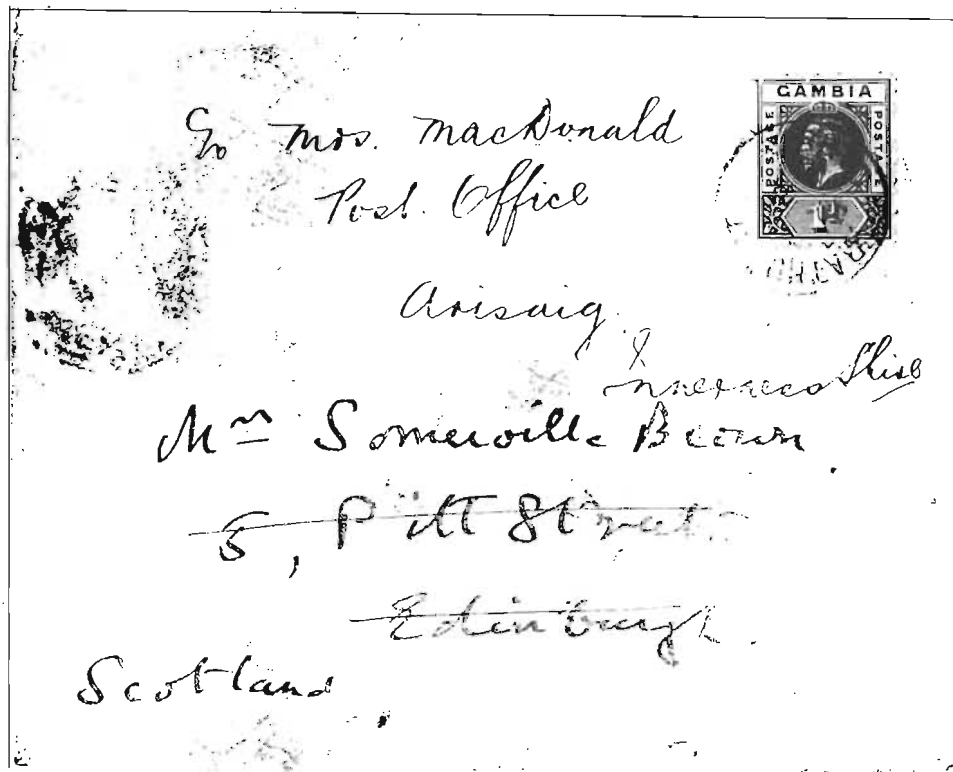 GAMBIA
POSTAGE
POSTAGE
1d
C/o Mrs. MacDonald
Post. Office
Arisaig.
Inverness Shire
Mrs Somerville Brown.
5, Pitt Street.
Edinburgh.
Scotland.